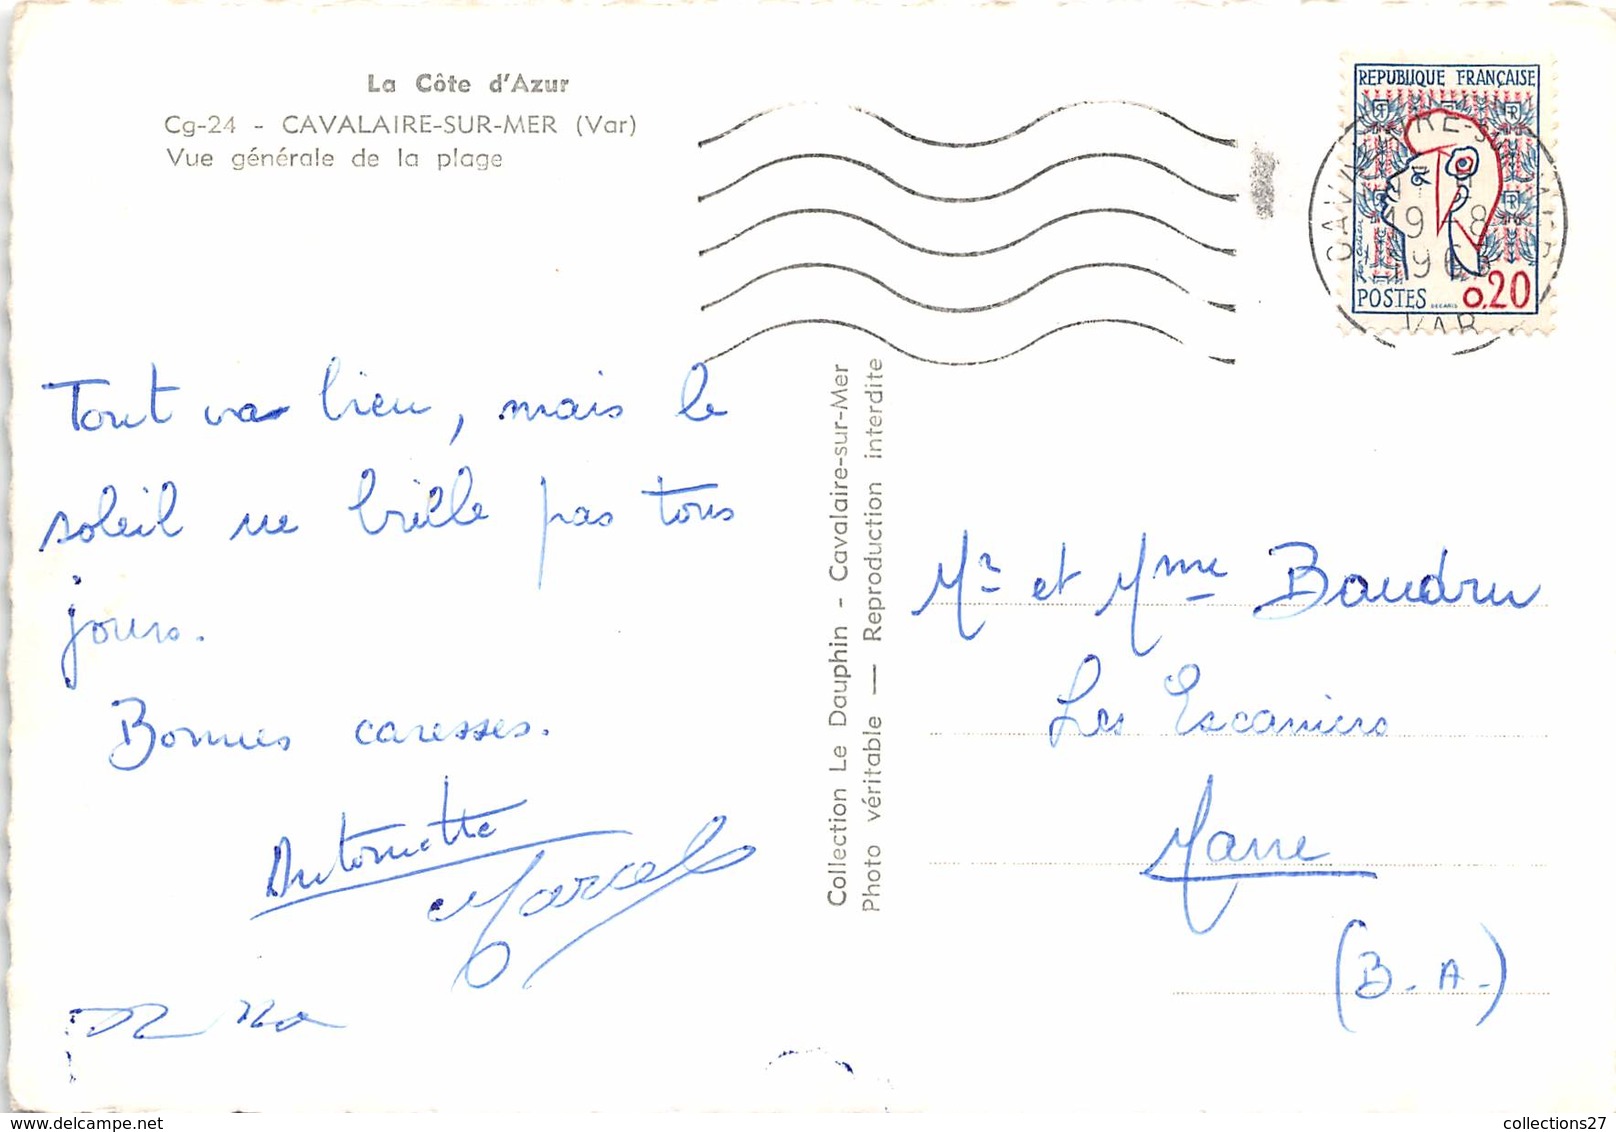 La Côte d'Azur
Cg-24 - CAVALAIRE-SUR-MER (Var)
Vue générale de la plage
REPUBLIQUE FRANÇAISE
POSTES 0,20
DECARIS
CAVALAIRE-SUR-MER
19-8
VAR
Tout va bien, mais le
soleil ne brille pas tous
jours.
Bonnes caresses.
Antoinette
Marcel
Collection Le Dauphin - Cavalaire-sur-Mer
Photo véritable — Reproduction interdite
Mr et Mme Baudru
Les Escaniers
Mane
(B.A.)
collections27